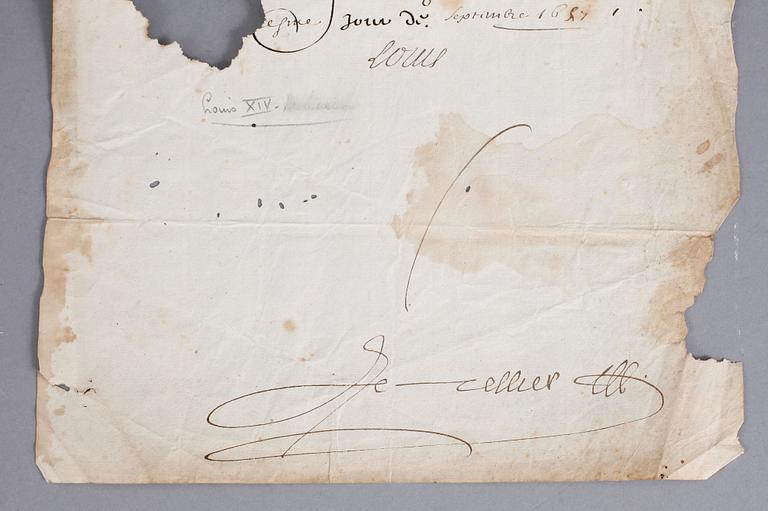 esme Jour de Septembre 1657
Louis
Louis XIV
Le Tellier